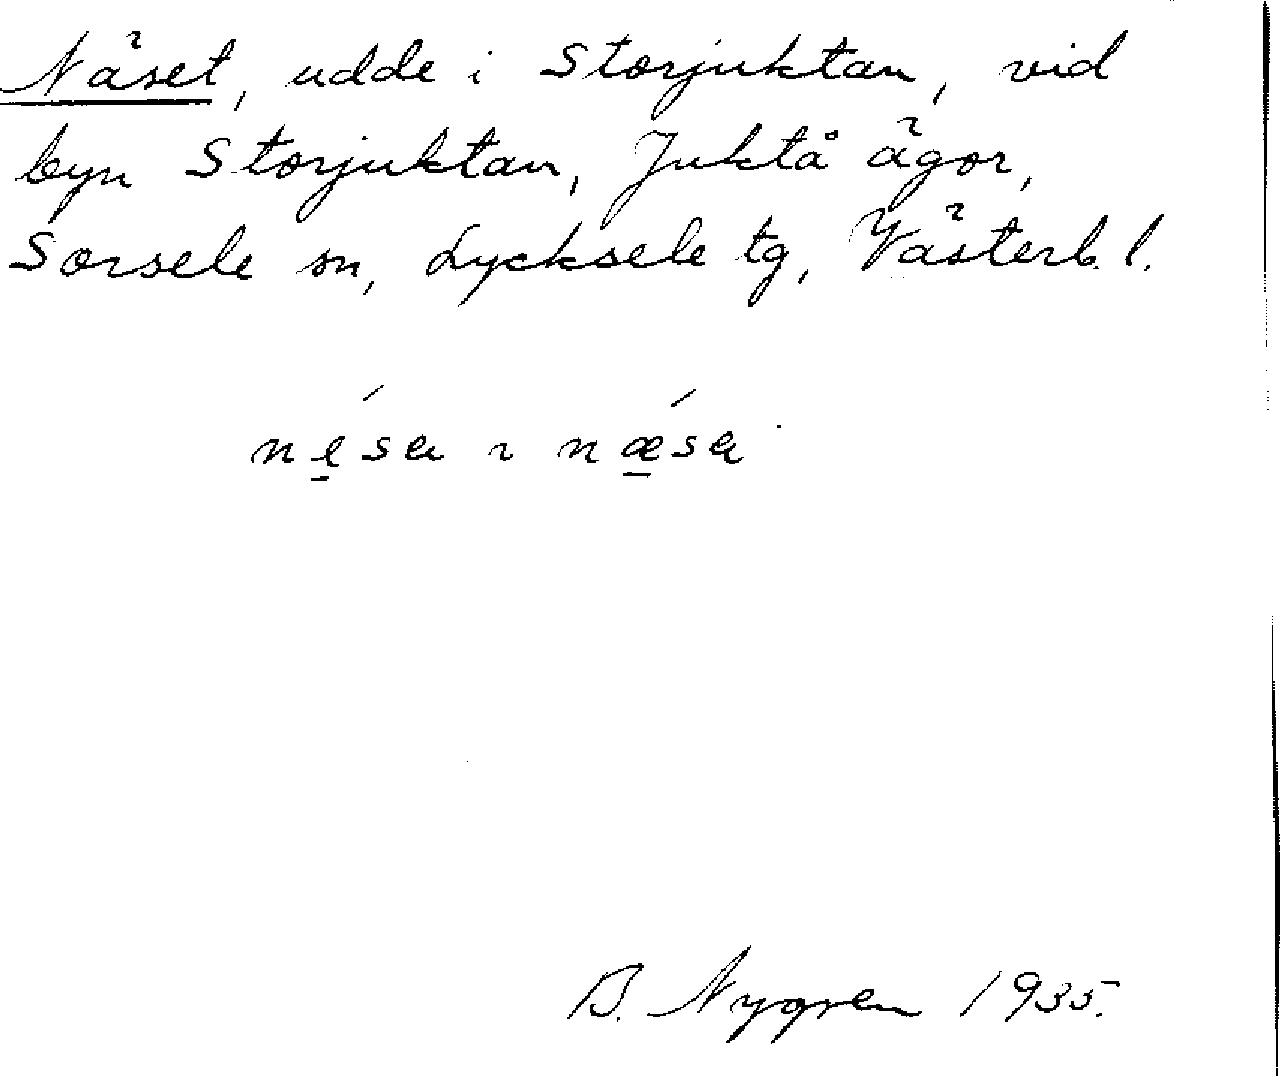 Näset, udde i Storjuktan, vid
byn Storjuktan, Juktå ägor,
Sorsele sn, Lycksele tg, Västerb. l.
B. Nygren 1935.